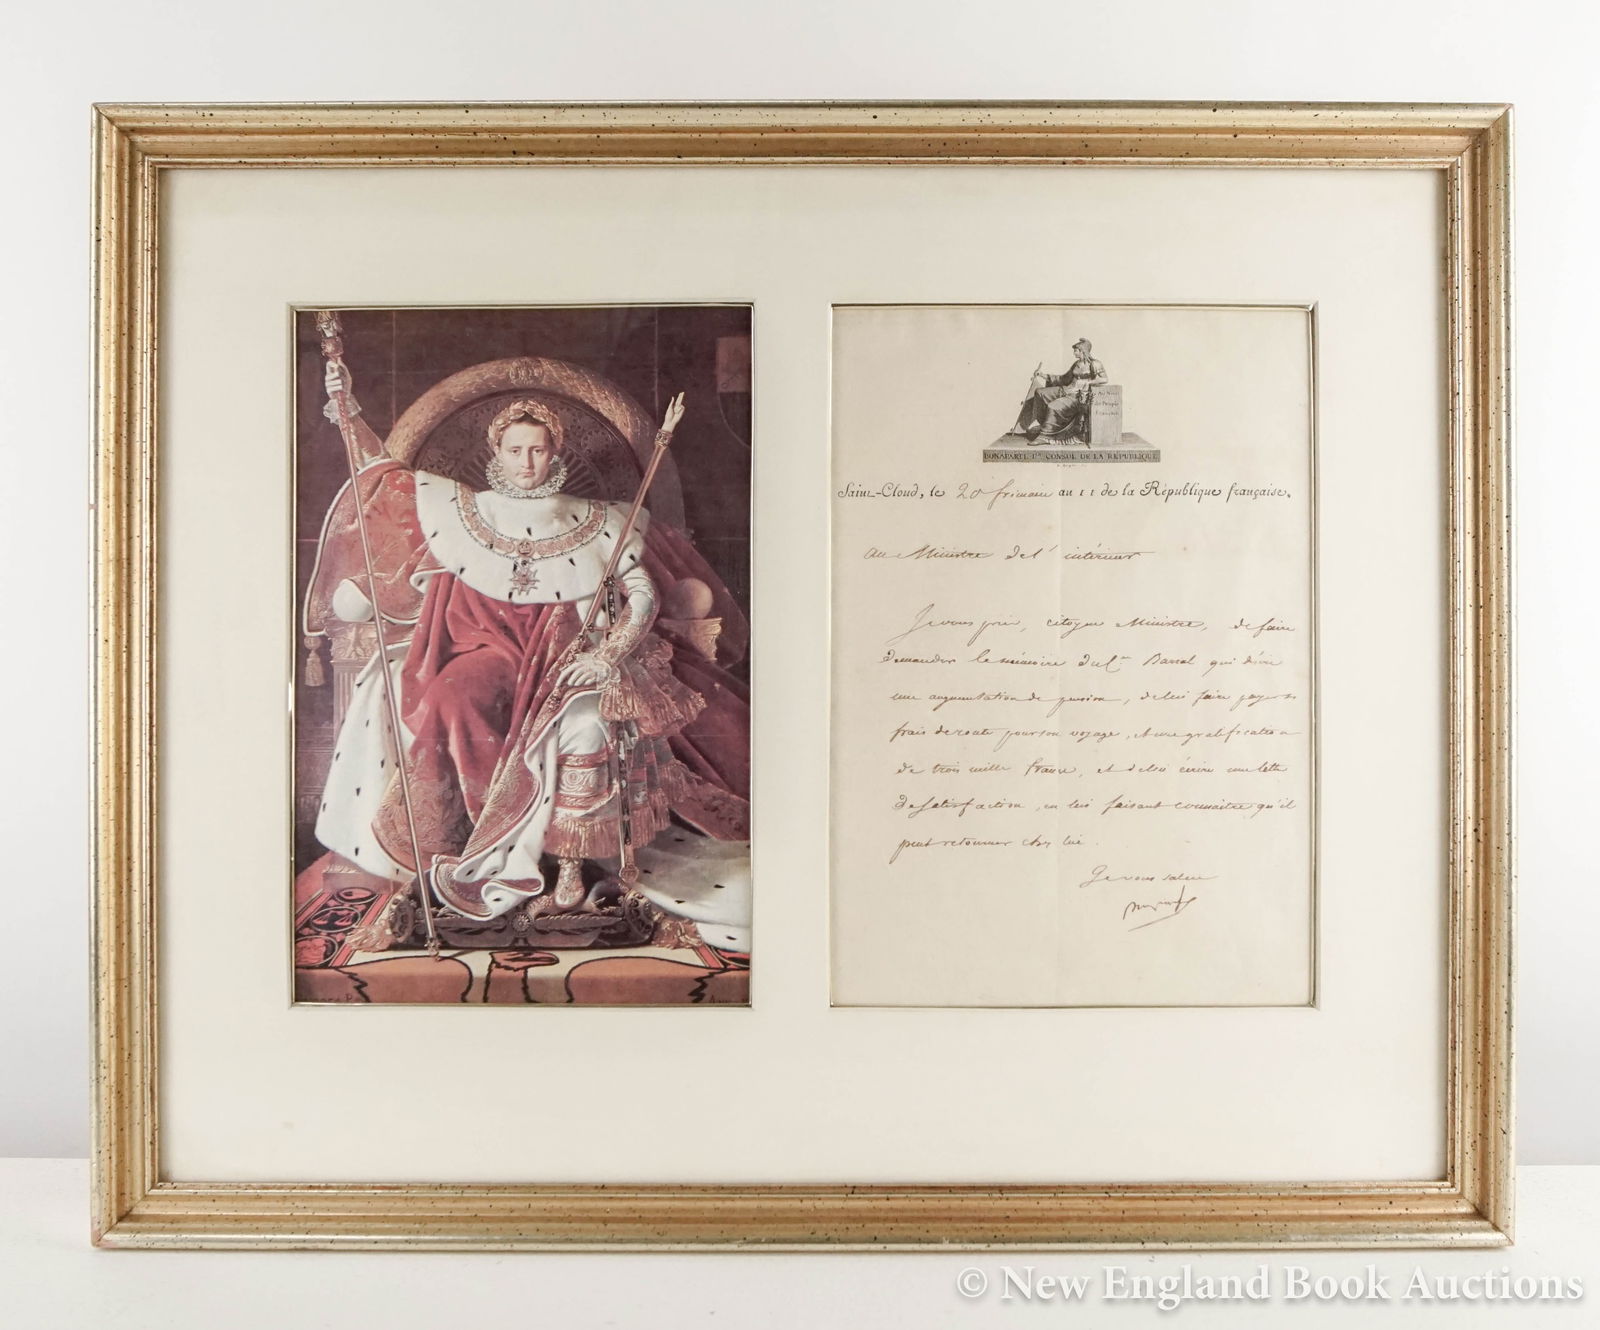 Au Nom
du Peuple
Français
BONAPARTE, 1er CONSUL DE LA RÉPUBLIQUE
Saint-Cloud, le 20 frimaire an 11 de la République française.
Au Ministre de l'intérieur
Je vous prie, citoyen Ministre, de faire
demander le mémoire du Cen Barral qui désire
une augmentation de pension, de lui faire payer ses
frais de route pour son voyage, et une gratification
de trois mille francs, et de lui écrire une lettre
de satisfaction, en lui faisant connaitre qu'il
peut retourner chez lui.
Je vous salue
© New England Book Auctions